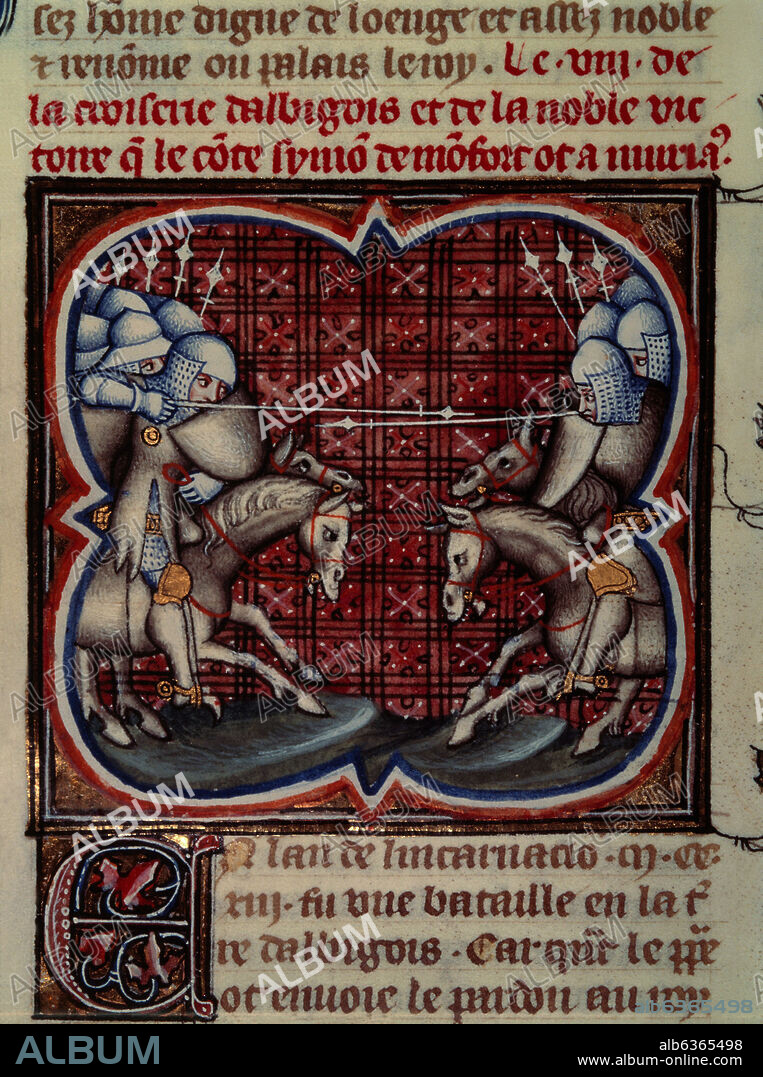 sez hōme digne de loenge et assez noble
⁊ renōme ou palais le roy. Le .viii. de
la croiserie dalbigois et de la noble vic
toire q̄ le cōte symō de mōfort ot a muriaꝰ.
En lan de lincarnacio .m. cc.
xiii. fu vne bataille en la tʳ
re dalbigois. Car quāt le ppe
ot enuoie le pardon au
ALBUM
ab6365498
ALBUM
alb6365498
www.album-online.com